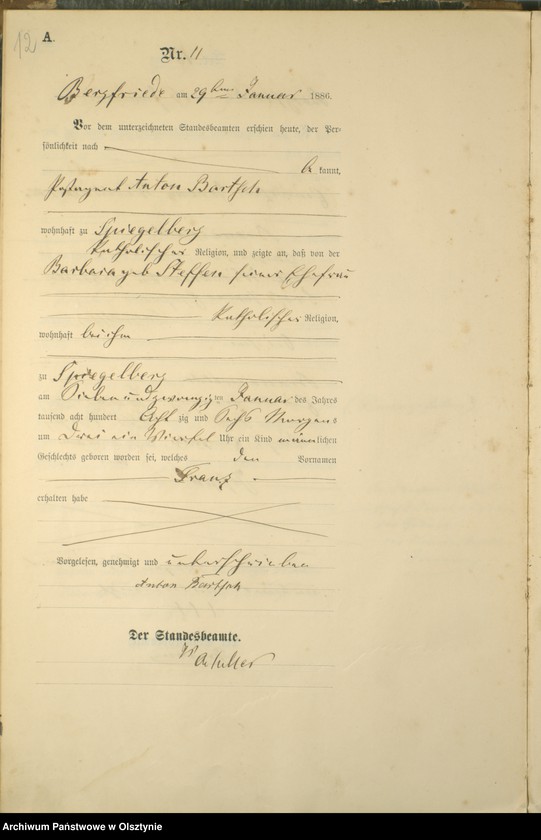 12
A.
Nr. 11
Bergfriede am 29ten Januar 1886.
Vor dem unterzeichneten Standesbeamten erschien heute, der Per-
sönlichkeit nach
be kannt,
Anton Bartsch
wohnhaft zu Spiegelberg
katholischer Religion, und zeigte an, daß von der
Barbara geb Steffen seiner Ehefrau
katholischer Religion,
wohnhaft bei ihm
zu Spiegelberg
am Siebenundzwanzig ten Januar des Jahres
tausend acht hundert Acht zig und Sechs Morgens
um Drei ein Viertel Uhr ein Kind männlichen
Geschlechts geboren worden sei, welches den Vornamen
Franz
erhalten habe
Vorgelesen, genehmigt und unterschrieben
Anton Bartsch
Der Standesbeamte.
Archiwum Państwowe w Olsztynie